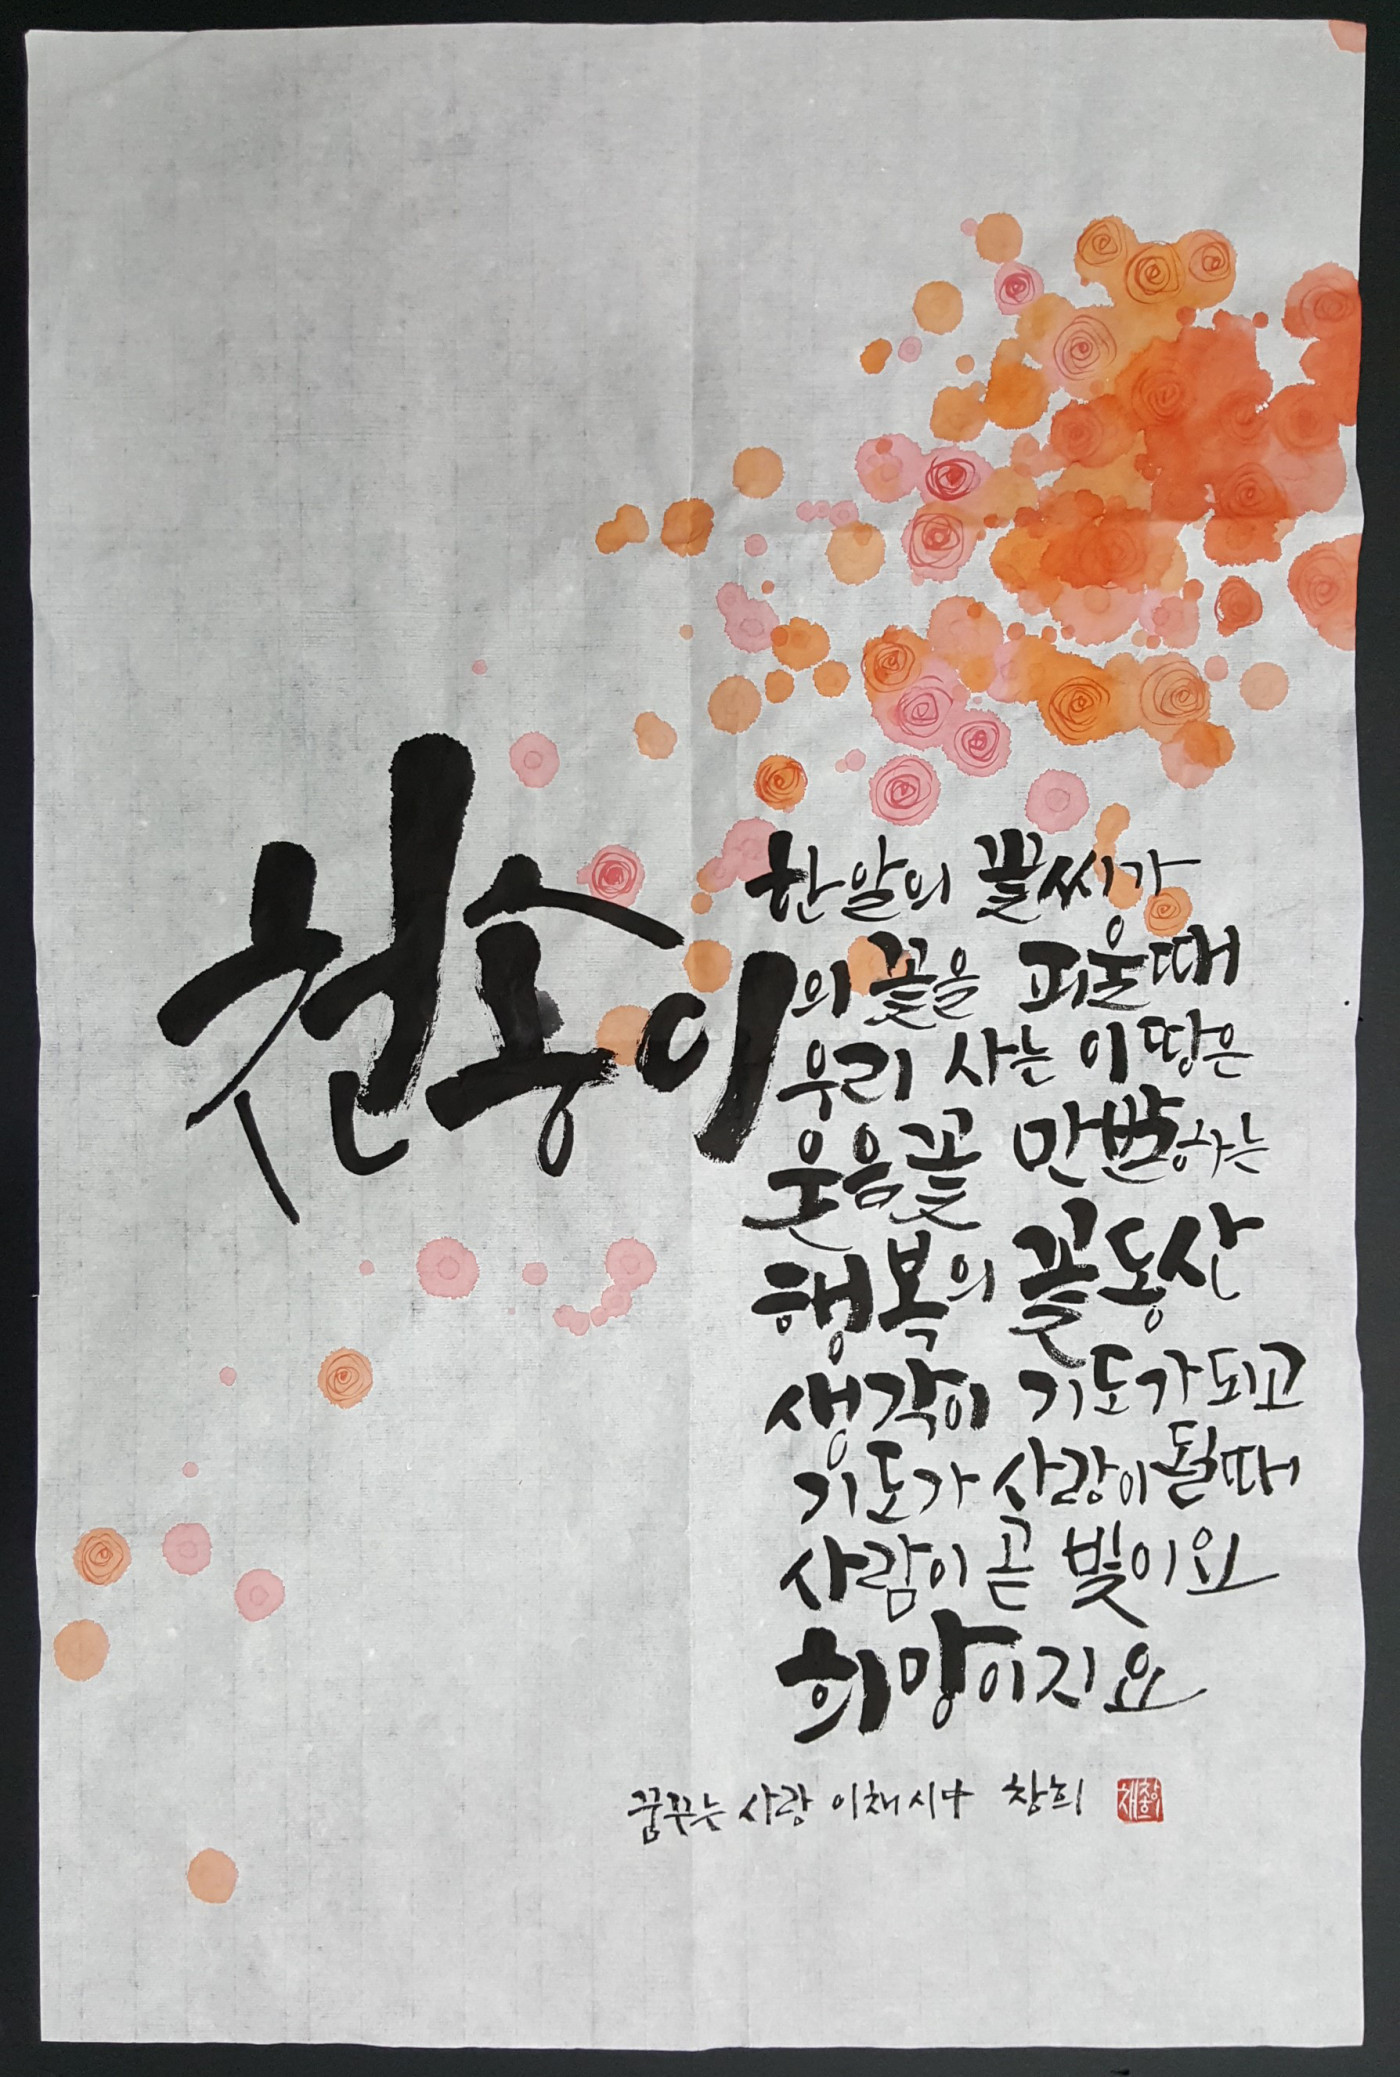 한알의 꽃씨가
천송이의 꽃을 피울때
우리 사는 이땅은
웃음꽃 만발하는
행복의 꽃동산
생각이 기도가되고
기도가 사랑이될때
사람이곧 빛이요
희망이지요
꿈꾸는 사랑 이채 시中 창희